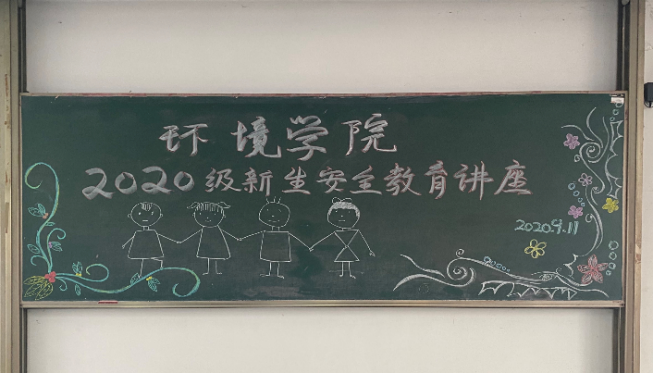 环境学院
2020级新生安全教育讲座
2020.9.11